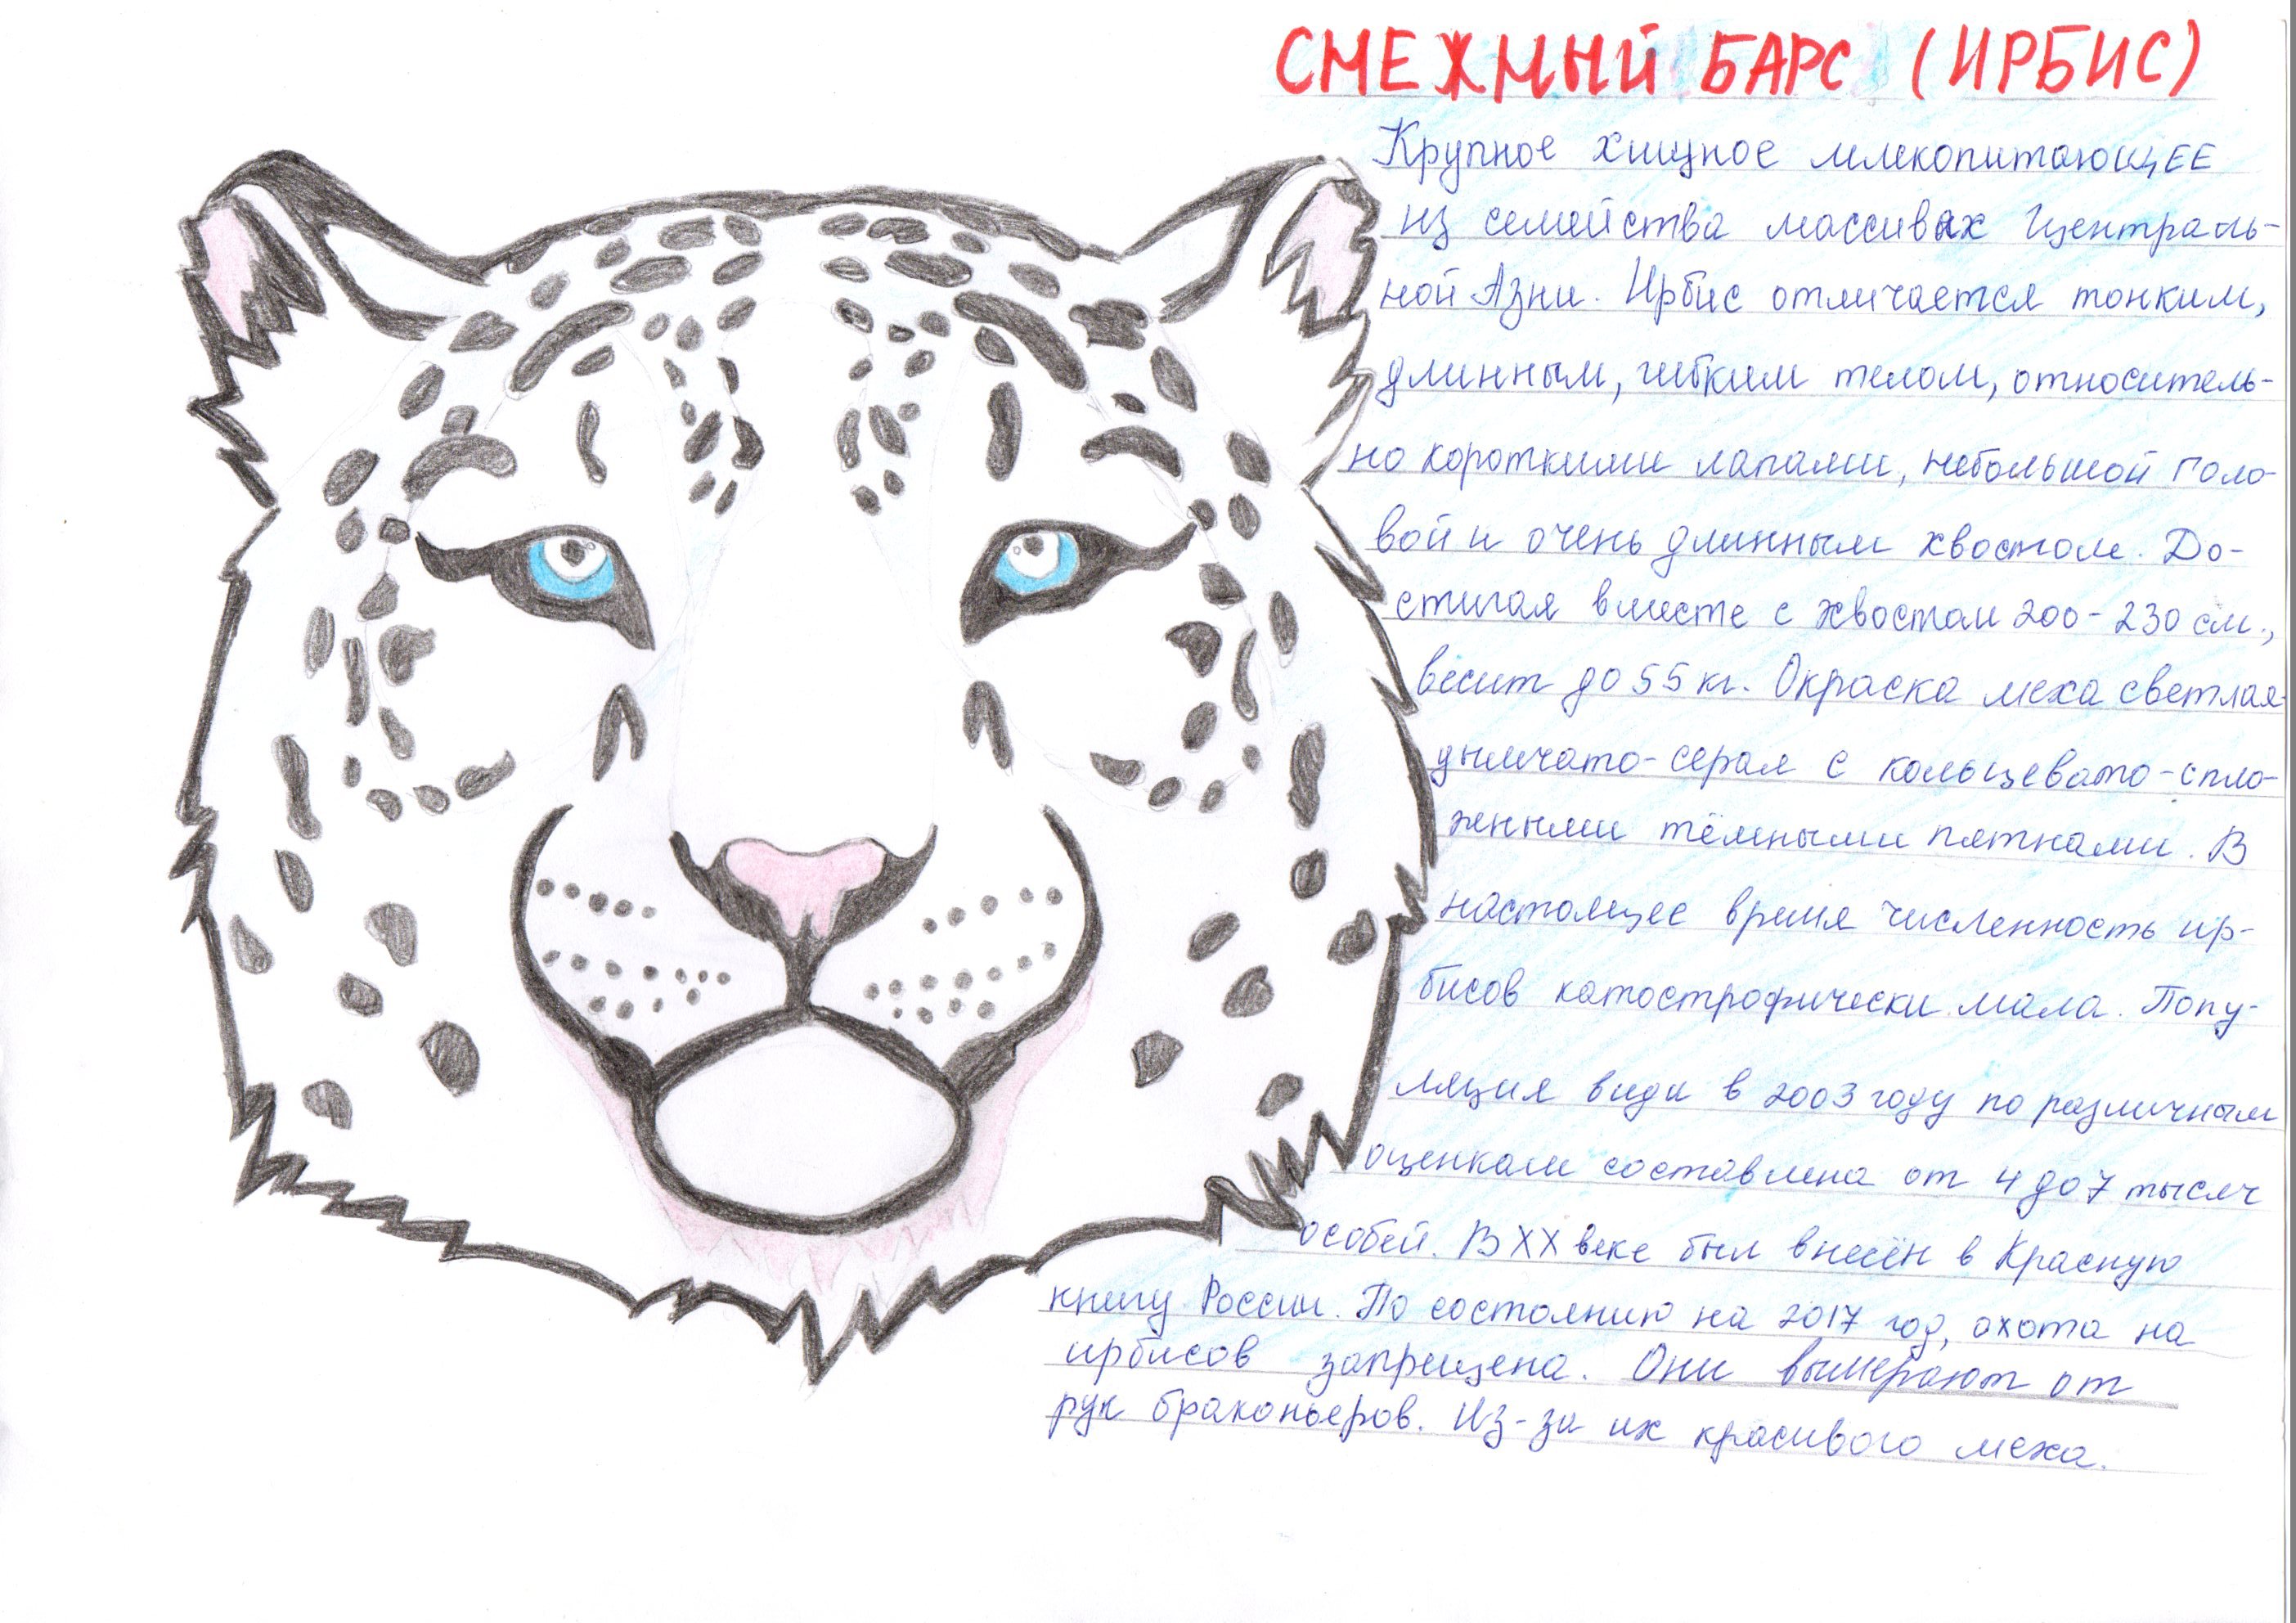 СМЕЖНЫЙ БАРС (ИРБИС)
Крупное хищное млекопитающЕЕ
из семейства массивах Централь-
ной Азии. Ирбис отличается тонким,
длинным, гибким телом, относитель-
но короткими лапами, небольшой голо-
вой и очень длинным хвостом. До-
стигая вместе с хвостом 200-230 см.,
весит до 55 кг. Окраска меха светлая
дымчато-серая с кольцевато-спло-
женными тёмными пятнами. В
настоящее время численность ир-
бисов катострофически мала. Попу-
ляция вида в 2003 году по различным
оценкам составлена от 4 до 7 тысяч
особей. В XX веке был внесён в Красную
книгу России. По состоянию на 2017 год, охота на
ирбисов запрещена. Они вымерают от
рук браконьеров. Из-за их красивого меха.